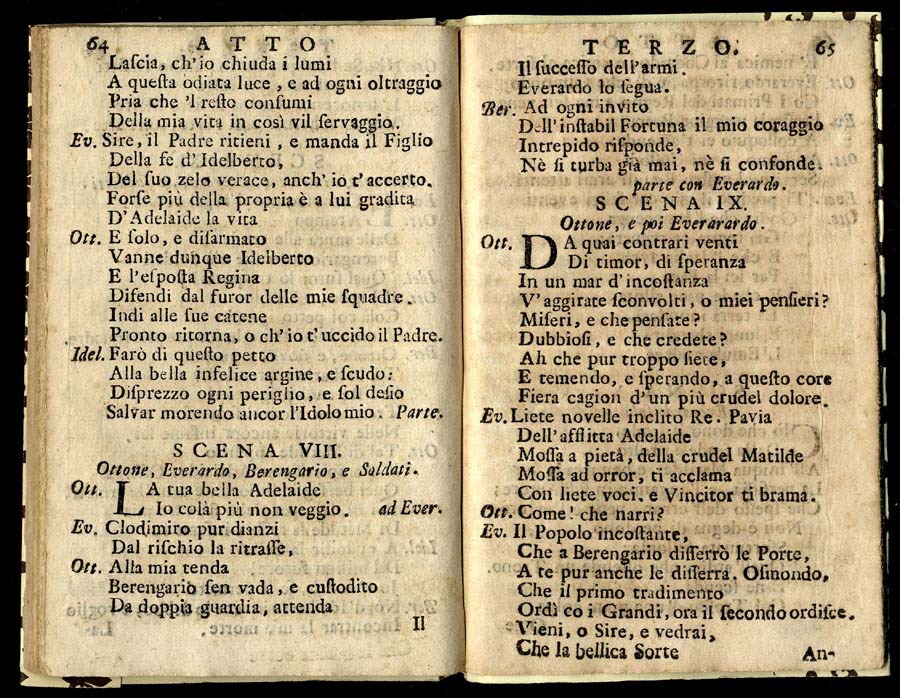 64 ATTO
Lascia, ch'io chiuda i lumi
A questa odiata luce, e ad ogni oltraggio
Pria che 'l resto consumi
Della mia vita in così vil servaggio.
Ev. Sire, il Padre ritieni, e manda il Figlio
Della fe d'Idelberto,
Del suo zelo verace, anch' io t'accerto.
Forse più della propria è a lui gradita
D'Adelaide la vita
Ott. E solo, e disarmato
Vanne dunque Idelberto
E l'esposta Regina
Difendi dal furor delle mie squadre.
Indi alle sue catene
Pronto ritorna, o ch'io t'uccido il Padre.
Idel. Farò di questo petto
Alla bella infelice argine, e scudo:
Disprezzo ogni periglio, e sol desio
Salvar morendo ancor l'Idolo mio. Parte.
SCENA VIII.
Ottone, Everardo, Berengario, e Soldati.
Ott. LA tua bella Adelaide
Io colà più non veggio. ad Ever.
Ev. Clodimiro pur dianzi
Dal rischio la ritrasse,
Ott. Alla mia tenda
Berengario sen vada, e custodito
Da doppia guardia, attenda
Il
TERZO. 65
Il successo dell'armi.
Everardo lo segua.
Ber. Ad ogni invito
Dell'instabil Fortuna il mio coraggio
Intrepido risponde,
Nè si turba già mai, nè si confonde.
parte con Everardo.
SCENA IX.
Ottone, e poi Everarardo.
Ott. DA quai contrari venti
Di timor, di speranza
In un mar d'incostanza
V'aggirate sconvolti, o miei pensieri?
Miseri, e che pensate?
Dubbiosi, e che credete?
Ah che pur troppo siete,
E temendo, e sperando, a questo core
Fiera cagion d'un più crudel dolore.
Ev. Liete novelle inclito Re. Pavia
Dell'afflitta Adelaide
Mossa a pietà, della crudel Matilde
Mossa ad orror, ti acclama
Con liete voci, e Vincitor ti brama.
Ott. Come! che narri?
Ev. Il Popolo incostante,
Che a Berengario disserrò le Porte,
A te pur anche le disserra. Osmondo,
Che il primo tradimento
Ordì co i Grandi, ora il secondo ordisce.
Vieni, o Sire, e vedrai,
Che la bellica Sorte
An-